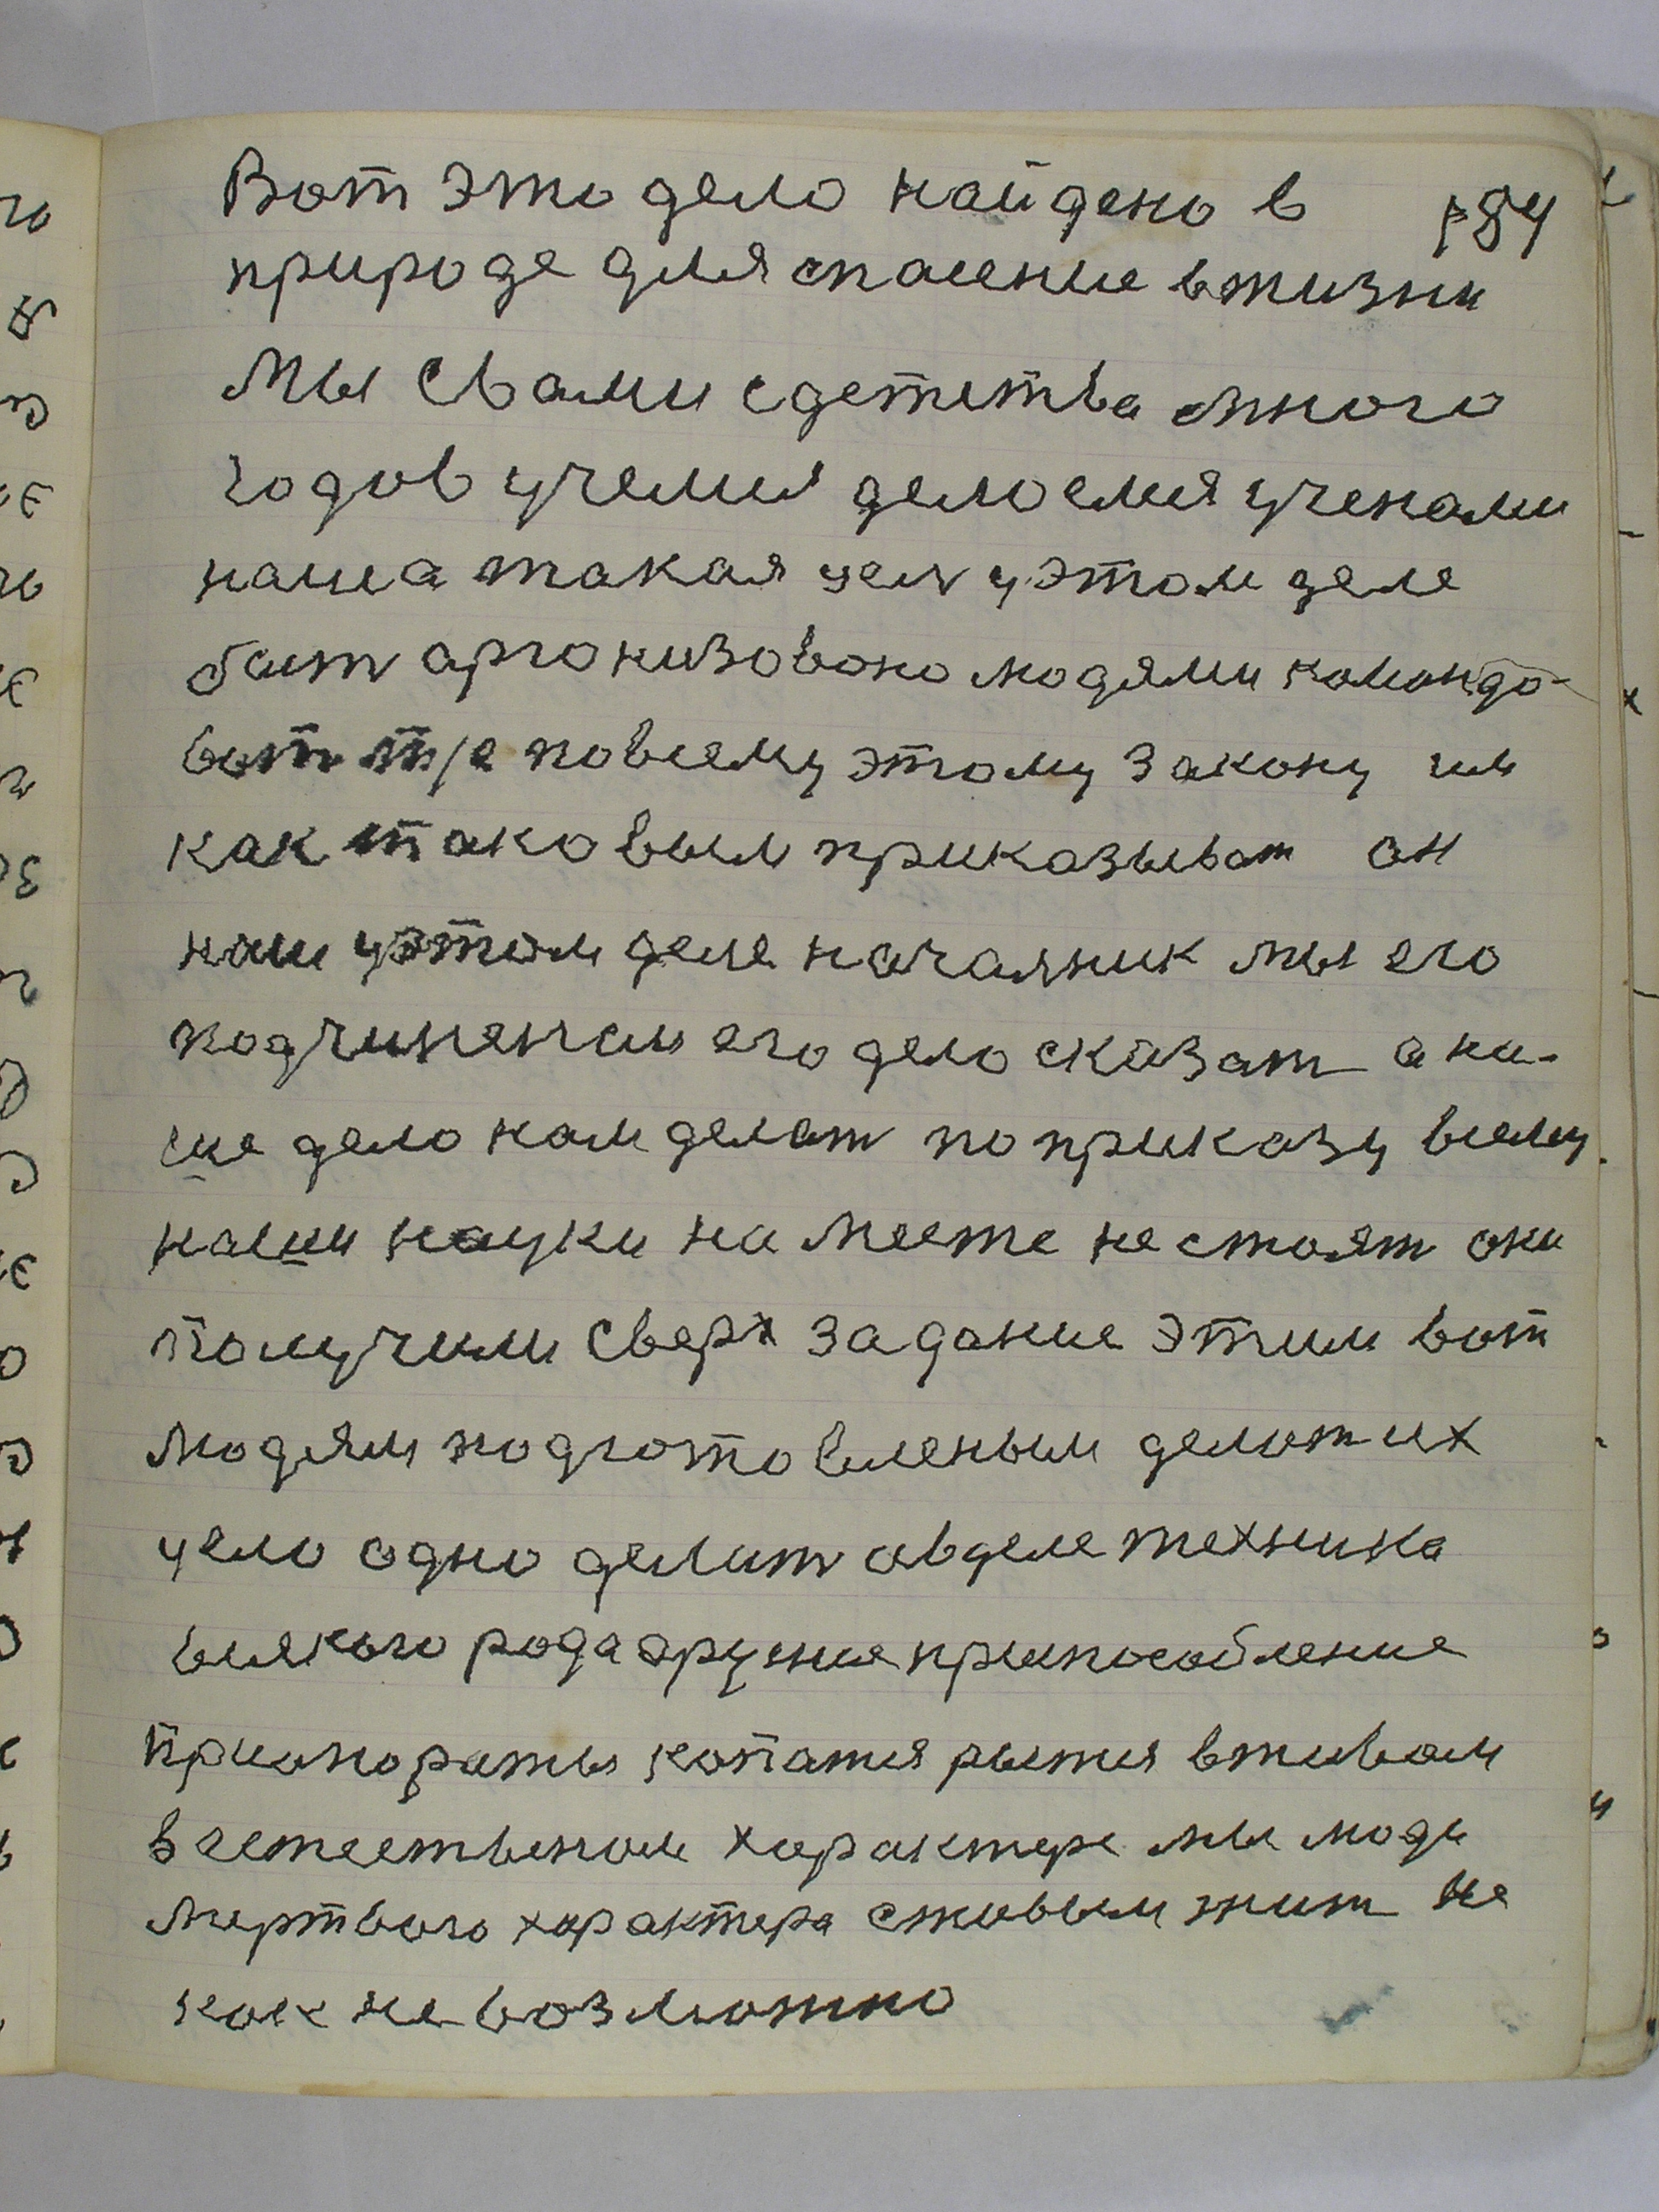 Вот это дело найдено в 184
природе для спасение вжизни
Мы Свами сдетства много
годов учемся делоемся ученами
наша такая цел уэтом деле
бит аргонизовоно людями комондо-
ват т/е повсему этому закону им
как таковым приказыват он
наш уэтом деле начальник мы его
подчиненаи его дело сказат а на-
ше дело нам делат по приказу всему
наши науки на месте не стоят они
получили Сверх задание этим вот
людям подготовленым делат их
чело одно делит авделе техника
всякого рода аружие приспособление
приопораты копатся рытся вживом
в естественом характере мы люди
мертвого характера стовым жит не
как не возможно